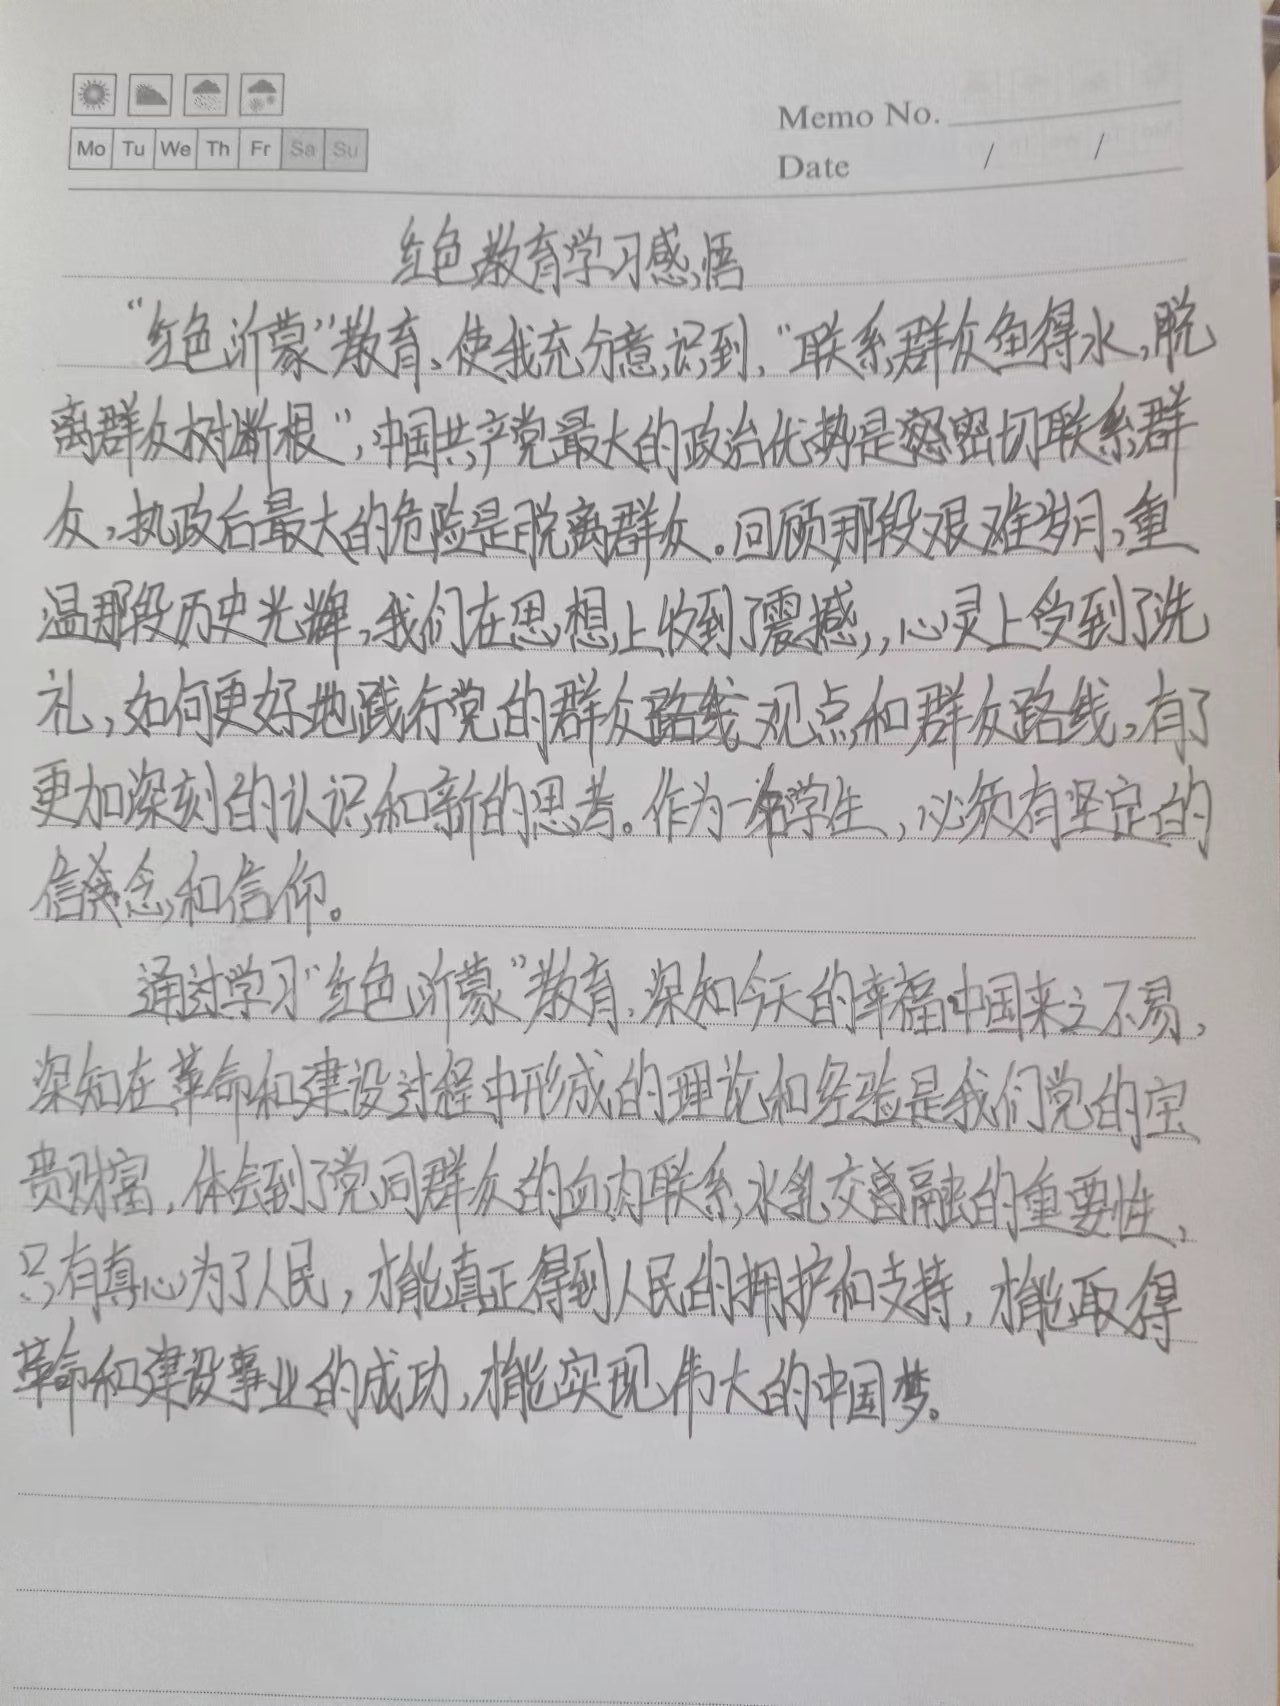 Mo Tu We Th Fr Sa Su
Memo No.
Date / /
红色教育学习感悟
“红色沂蒙”教育,使我充分意识到,“联系群众鱼得水,脱
离群众树断根”,中国共产党最大的政治优势是密切联系群
众,执政后最大的危险是脱离群众。回顾那段艰难岁月,重
温那段历史光辉,我们在思想上收到了震撼,,心灵上受到了洗
礼,如何更好地践行党的群众观点和群众路线,有了
更加深刻的认识和新的思考。作为一名学生,必须有坚定的
信念和信仰。
通过学习“红色沂蒙”教育,深知今天的幸福中国来之不易,
深知在革命和建设过程中形成的理论和经验是我们党的宝
贵财富,体会到了党同群众的血肉联系,水乳交融的重要性,
只有真心为了人民,才能真正得到人民的拥护和支持,才能取得
革命和建设事业的成功,才能实现伟大的中国梦。